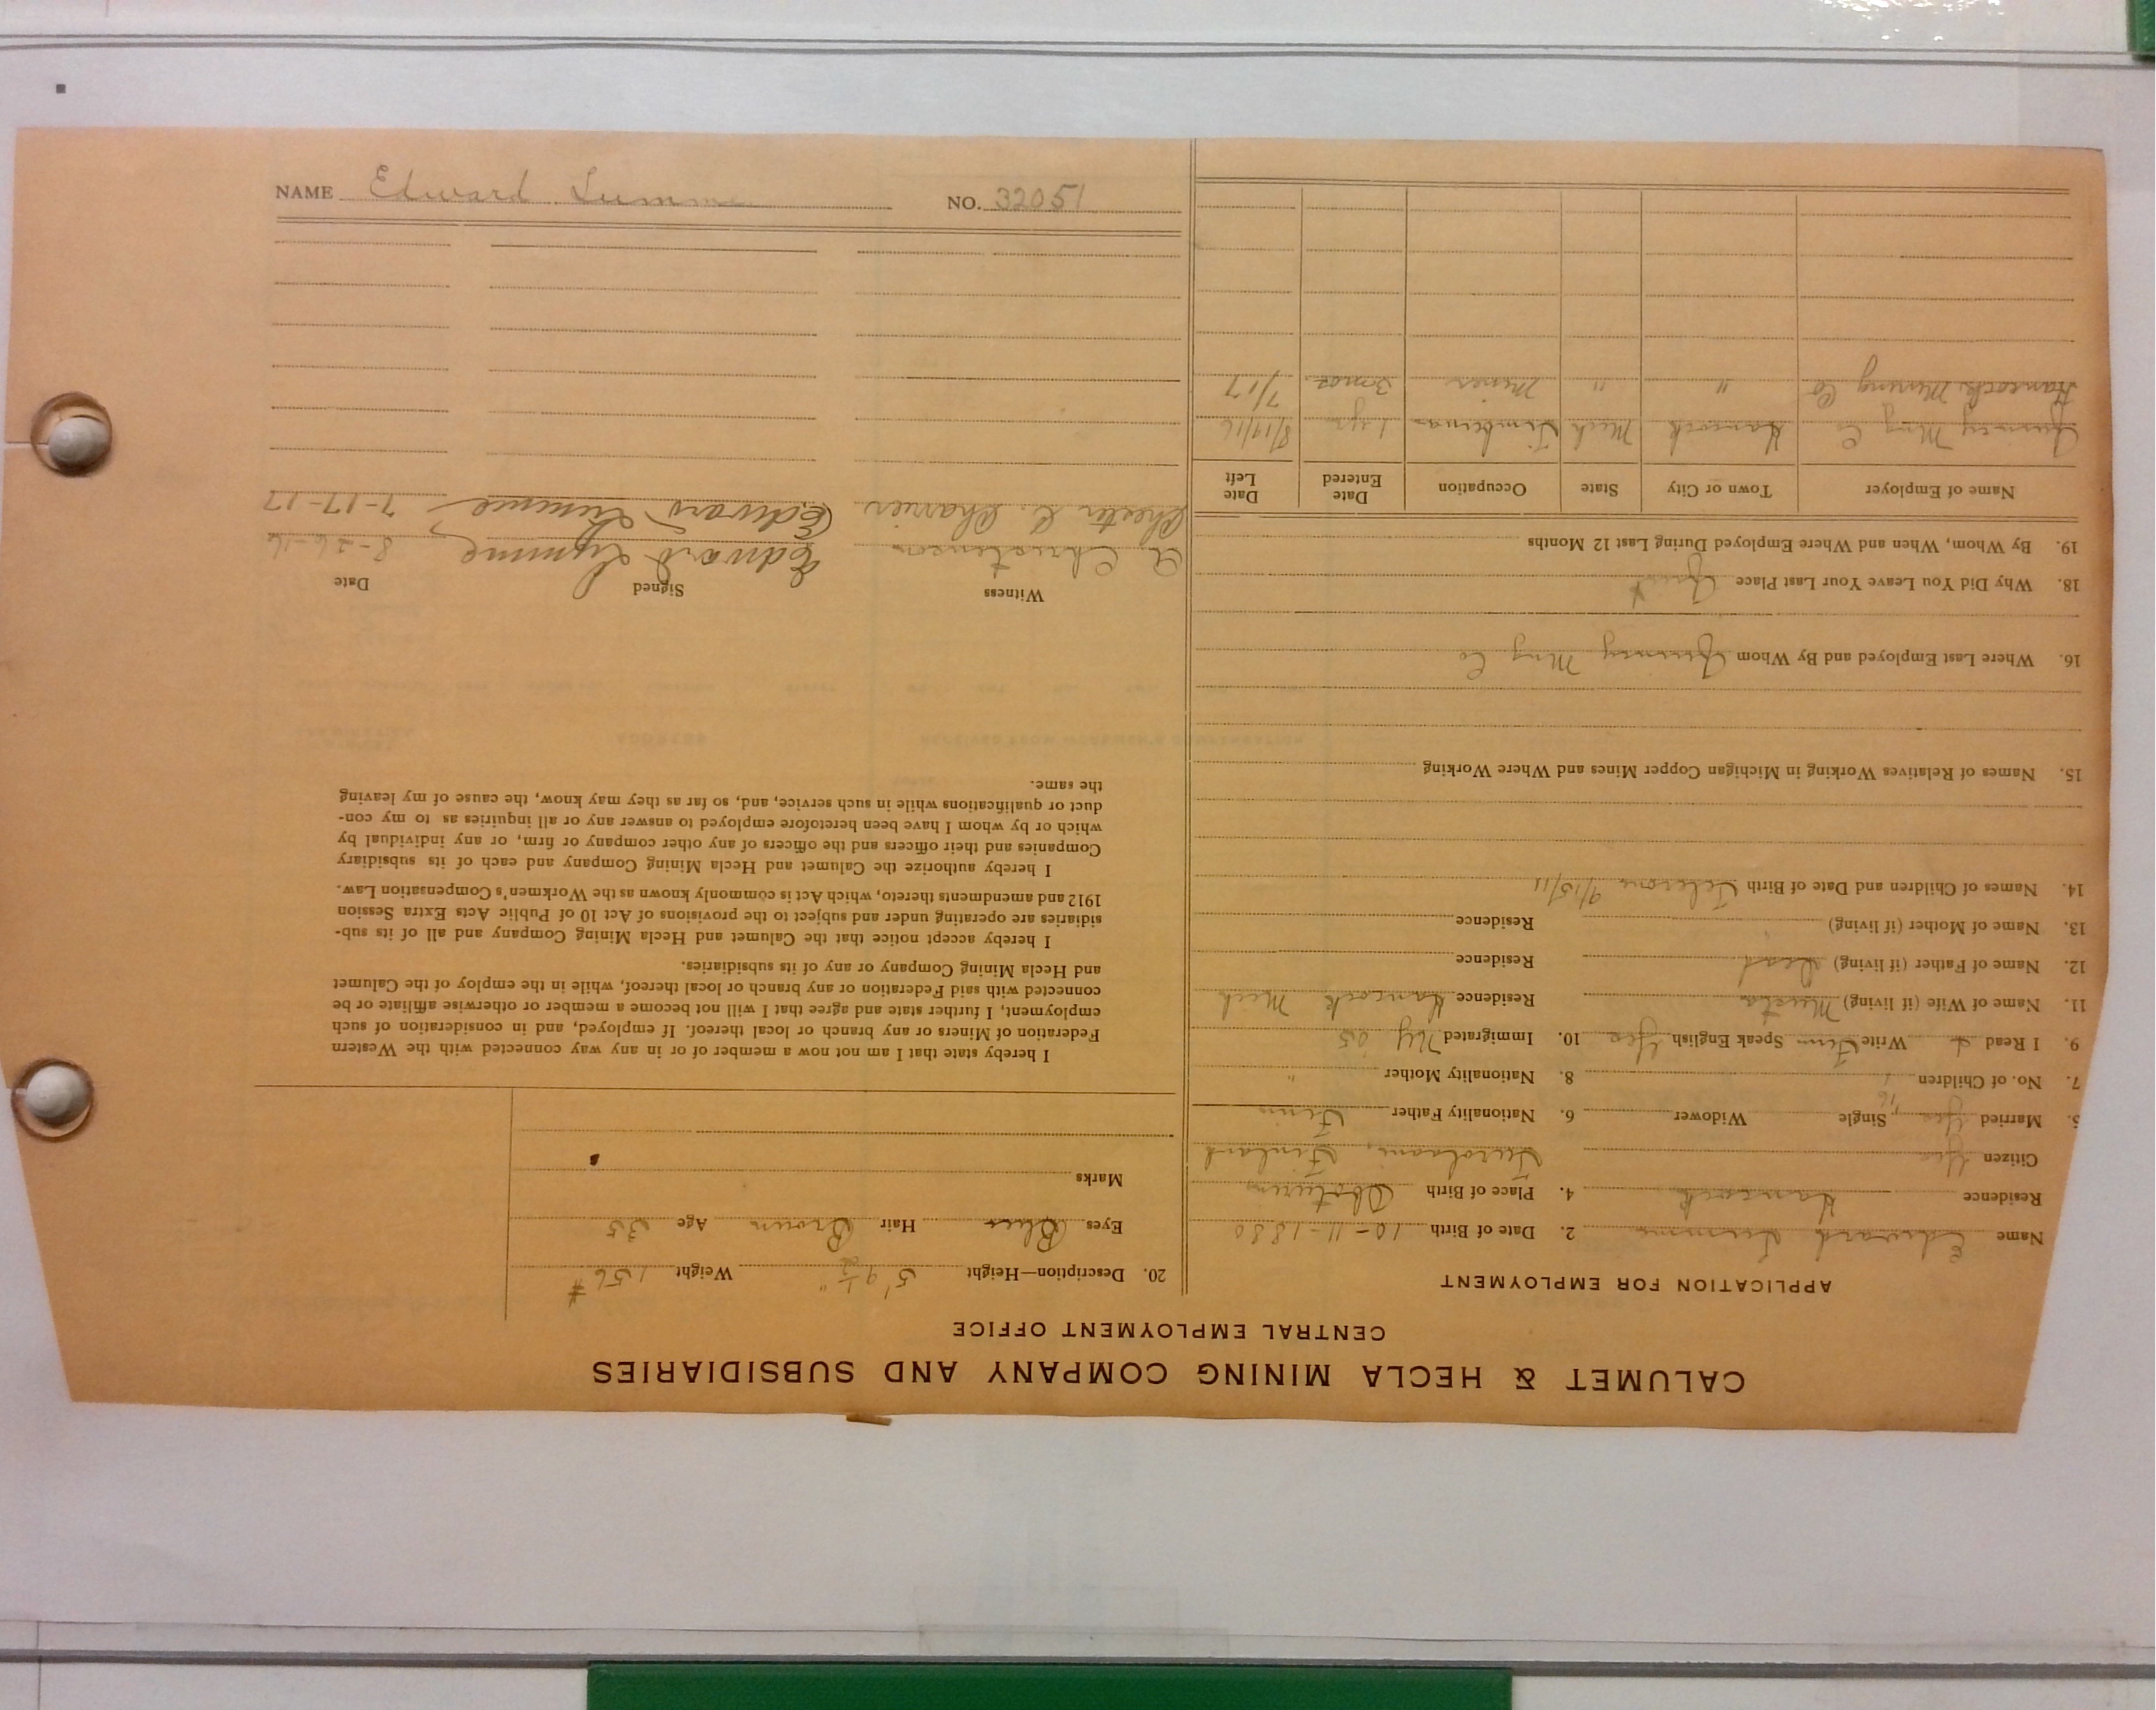 CALUMET & HECLA MINING COMPANY AND SUBSIDIARIES
CENTRAL EMPLOYMENT OFFICE
APPLICATION FOR EMPLOYMENT
Name Edward Lumme 2. Date of Birth 10-11-1880
Residence Hancock 4. Place of Birth
Citizen Yes Finland
Married Yes Single Widower 6. Nationality Father Finn
7. No. of Children 1 8. Nationality Mother "
9. I Read & Write Finn Speak English Yes 10. Immigrated NY 05
11. Name of Wife (if living) Residence Hancock Mich
12. Name of Father (if living) Dead Residence
13. Name of Mother (if living) Residence
14. Names of Children and Date of Birth 9/15/11
15. Names of Relatives Working in Michigan Copper Mines and Where Working
16. Where Last Employed and By Whom Quincy Mng Co
18. Why Did You Leave Your Last Place Quit
19. By Whom, When and Where Employed During Last 12 Months
Name of Employer Town or City State Occupation Date Entered Date Left
Quincy Mng Co Hancock Mich Timberman 1 yr 8/19/16
Hancock Mining Co " " Miner 3 mos 7/17
20. Description—Height 5' 9 1/2" Weight 156 #
Eyes Blue Hair Brown Age 35
Marks
I hereby state that I am not now a member of or in any way connected with the Western
Federation of Miners or any branch or local thereof. If employed, and in consideration of such
employment, I further state and agree that I will not become a member or otherwise affiliate or be
connected with said Federation or any branch or local thereof, while in the employ of the Calumet
and Hecla Mining Company or any of its subsidiaries.
I hereby accept notice that the Calumet and Hecla Mining Company and all of its sub-
sidiaries are operating under and subject to the provisions of Act 10 of Public Acts Extra Session
1912 and amendments thereto, which Act is commonly known as the Workmen's Compensation Law.
I hereby authorize the Calumet and Hecla Mining Company and each of its subsidiary
Companies and their officers and the officers of any other company or firm, or any individual by
which or by whom I have been heretofore employed to answer any or all inquiries as to my con-
duct or qualifications while in such service, and, so far as they may know, the cause of my leaving
the same.
Witness Signed Date
A. Christensen Edward Lumme 8-26-16
Chester C. Charrier Edward Lumme 7-17-17
NAME Edward Lumme NO. 32051